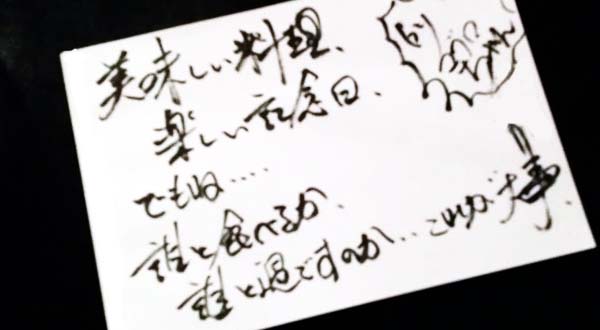 美味しい料理、
楽しい記念日、
でもね....
誰と食べるか、
誰と過ですのか...これが大事、